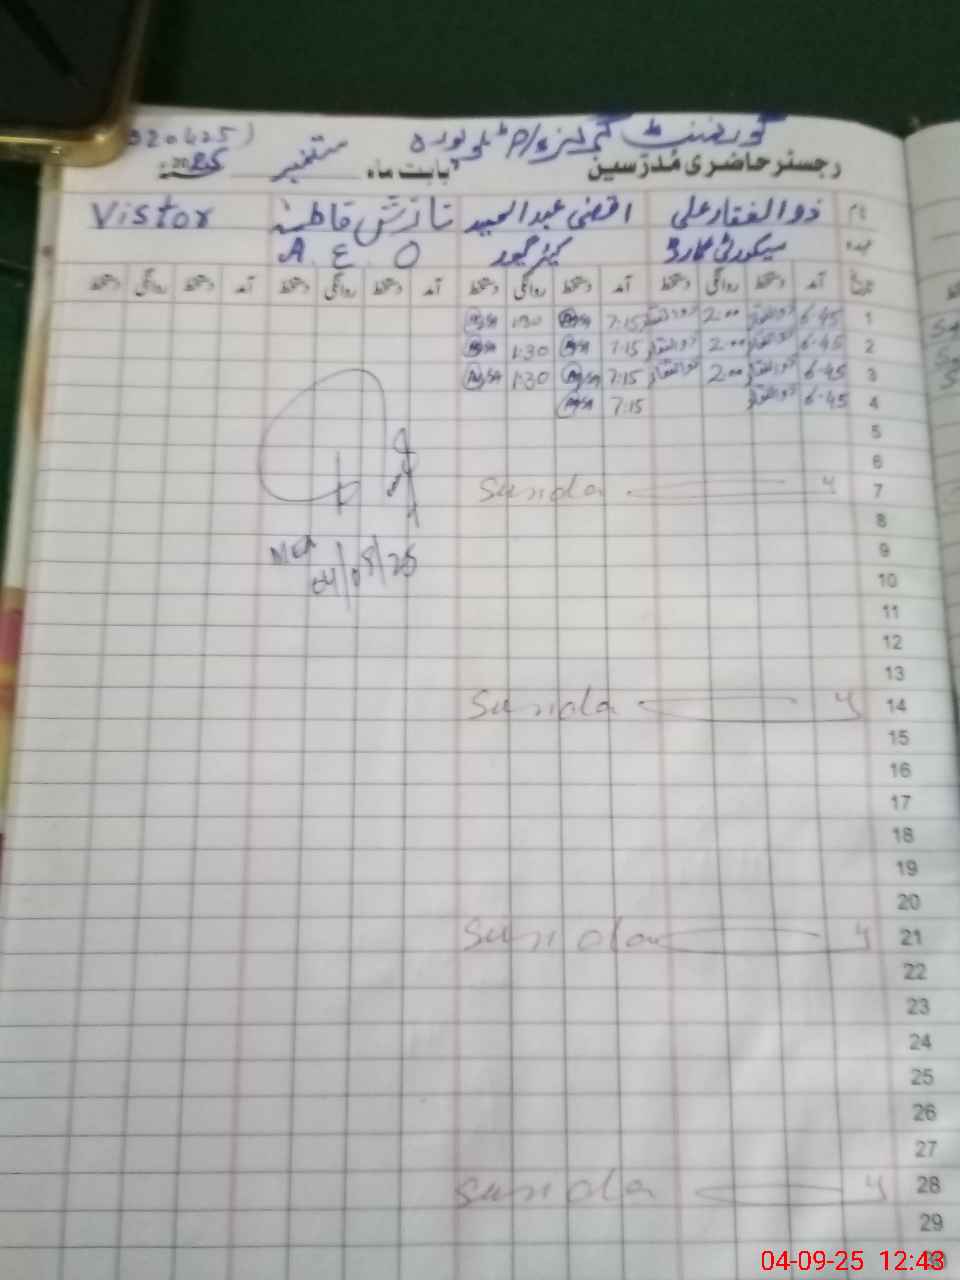 گورنمنٹ گرلز P/S
320425)
رجسٹر حاضری مُدرّسین بابت ماہ ستمبر 2025
نام ذوالفقار علی اقصٰی عبدالحمید نازش فاطمہ Vistor
عہدہ سیکورٹی گارڈ کیئر گیور A.E.O
تاریخ آمد دستخط روانگی دستخط آمد دستخط روانگی دستخط آمد دستخط روانگی دستخط آمد دستخط روانگی دستخط
1 6-45 ذوالفقار 2:00 ذوالفقار 7:15 Aqsa 1:30 Aqsa
2 6-45 ذوالفقار 2:00 ذوالفقار 7:15 Aqsa 1:30 Aqsa
3 6-45 ذوالفقار 2:00 ذوالفقار 7:15 Aqsa 1:30 Aqsa
4 6-45 ذوالفقار 7:15 Aqsa
5
6
7 Sunda y
8
MEA
9
04/09/25
10
11
12
13
14 Sunda y
15
16
17
18
19
20
21 Sunda y
22
23
24
25
26
27
28 Sunda y
29
30
04-09-25 12:43